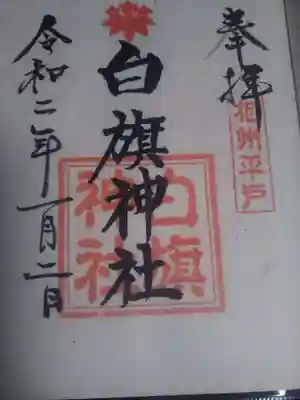 奉拝
相州平戸
白旗神社
白旗
神社
令和二年一月二日